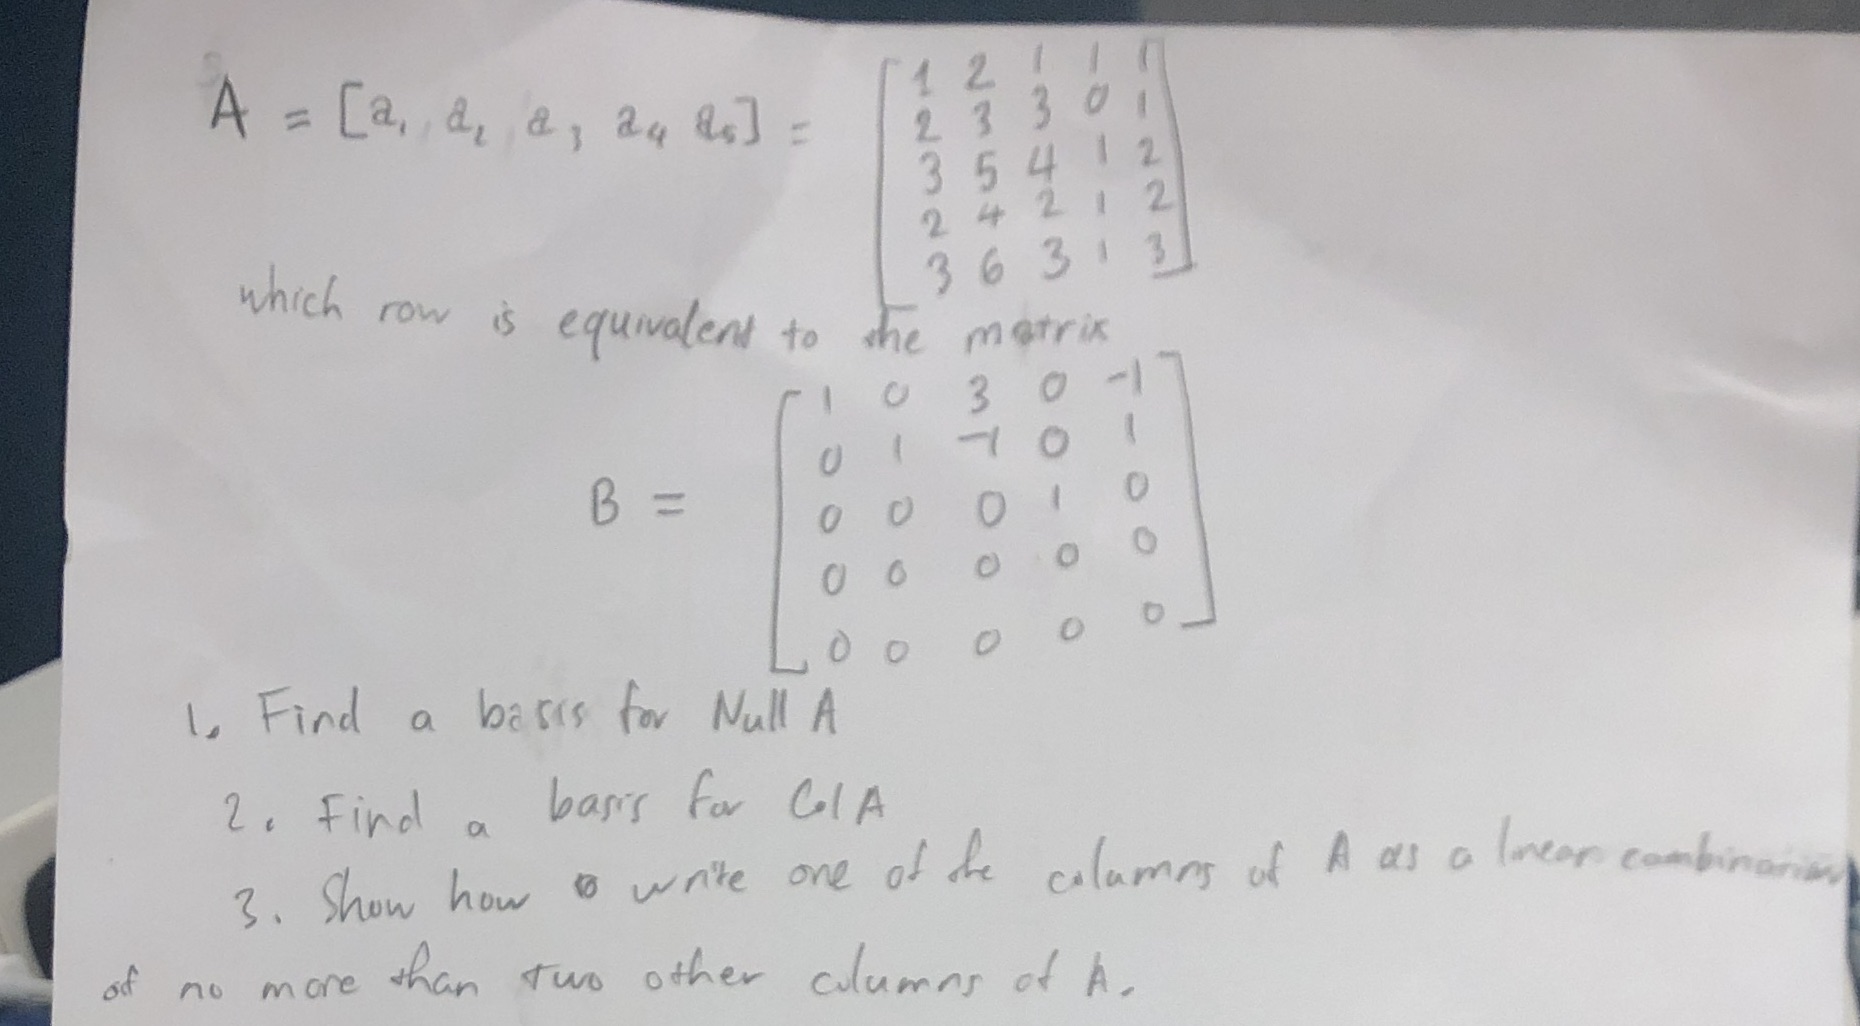 A = [a₁ a₂ a₃ a₄ a₅] = [1 2 1 1 1
2 3 3 0 1
3 5 4 1 2
2 4 2 1 2
3 6 3 1 3]
which row is equivalent to the matrix
B = [1 0 3 0 -1
0 1 -1 0 1
0 0 0 1 0
0 0 0 0 0
0 0 0 0 0]
1. Find a basis for Null A
2. Find a basis for Col A
3. Show how to write one of the columns of A as a linear combination
of no more than two other columns of A.